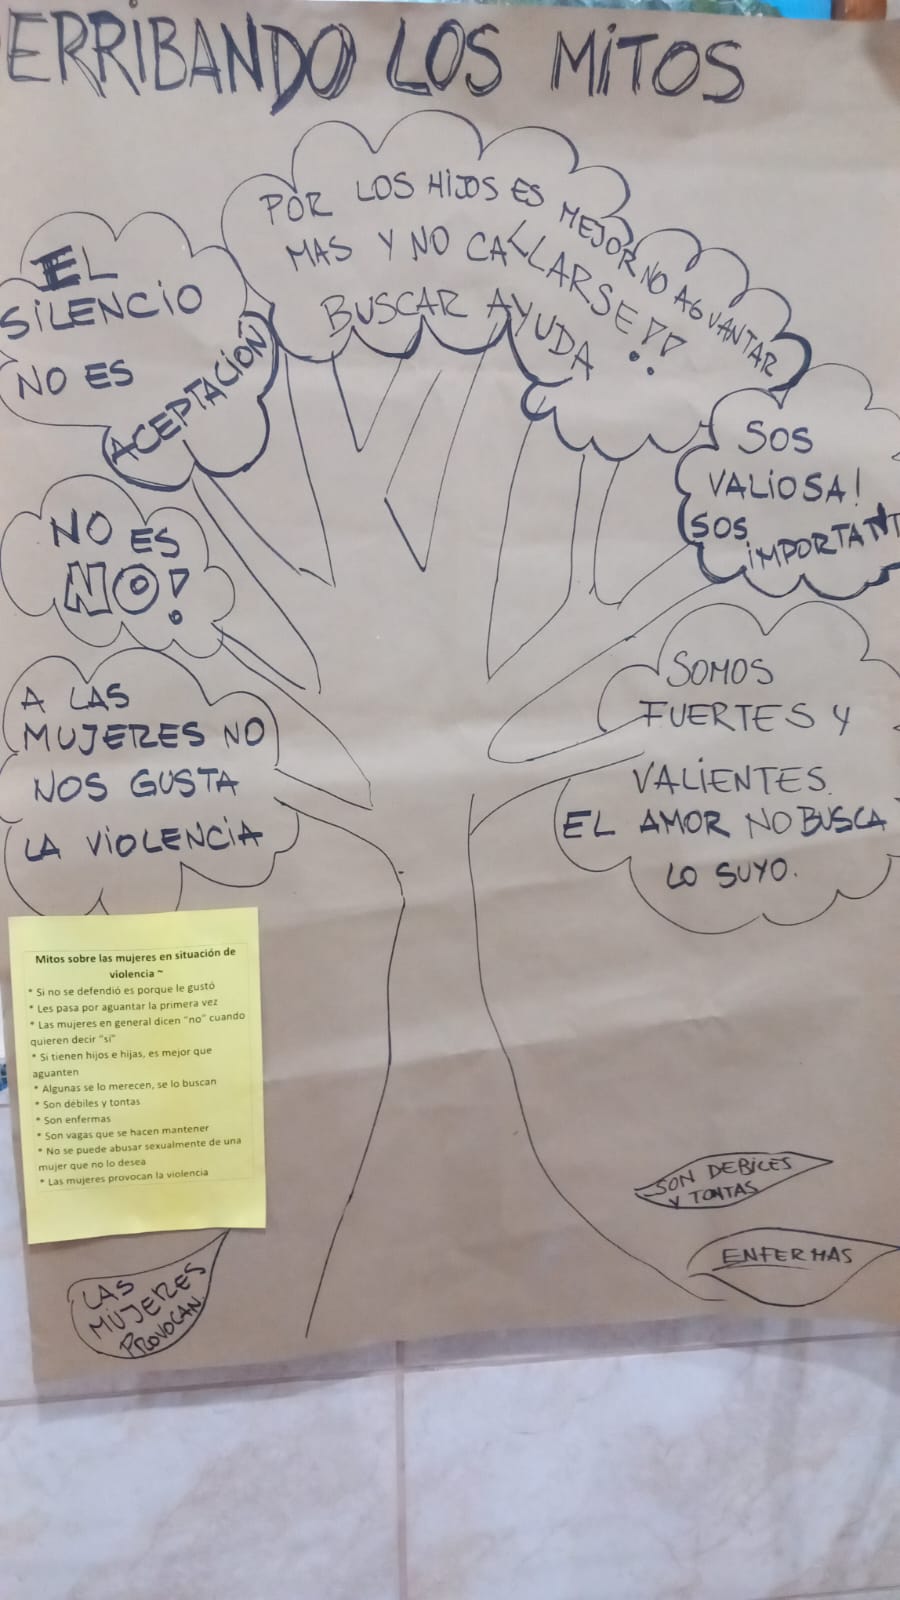 ERRIBANDO LOS MITOS
POR LOS HIJOS ES MEJOR NO AGUANTAR
MAS Y NO CALLARSE!!
BUSCAR AYUDA
EL
SILENCIO
NO ES
ACEPTACIÓN
SOS
VALIOSA!
SOS
IMPORTANT
NO ES
NO!
A LAS
MUJERES NO
NOS GUSTA
LA VIOLENCIA
SOMOS
FUERTES Y
VALIENTES.
EL AMOR NO BUSCA
LO SUYO.
Mitos sobre las mujeres en situación de
violencia ~
* Si no se defendió es porque le gustó
* Les pasa por aguantar la primera vez
* Las mujeres en general dicen "no" cuando
quieren decir "si"
* Si tienen hijos e hijas, es mejor que
aguanten
* Algunas se lo merecen, se lo buscan
* Son débiles y tontas
* Son enfermas
* Son vagas que se hacen mantener
* No se puede abusar sexualmente de una
mujer que no lo desea
* Las mujeres provocan la violencia
LAS
MUJERES
PROVOCAN.
SON DEBILES
Y TONTAS
ENFERMAS